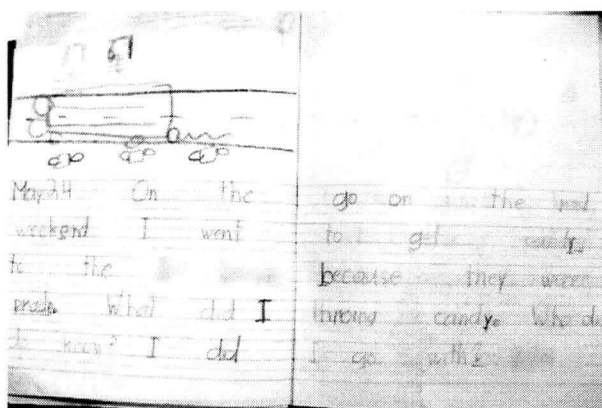 May 24 On the
weekend I went
to the
What did I
do ? I did
go on the
to get
because they were
throwing candy. Who d
I go with?